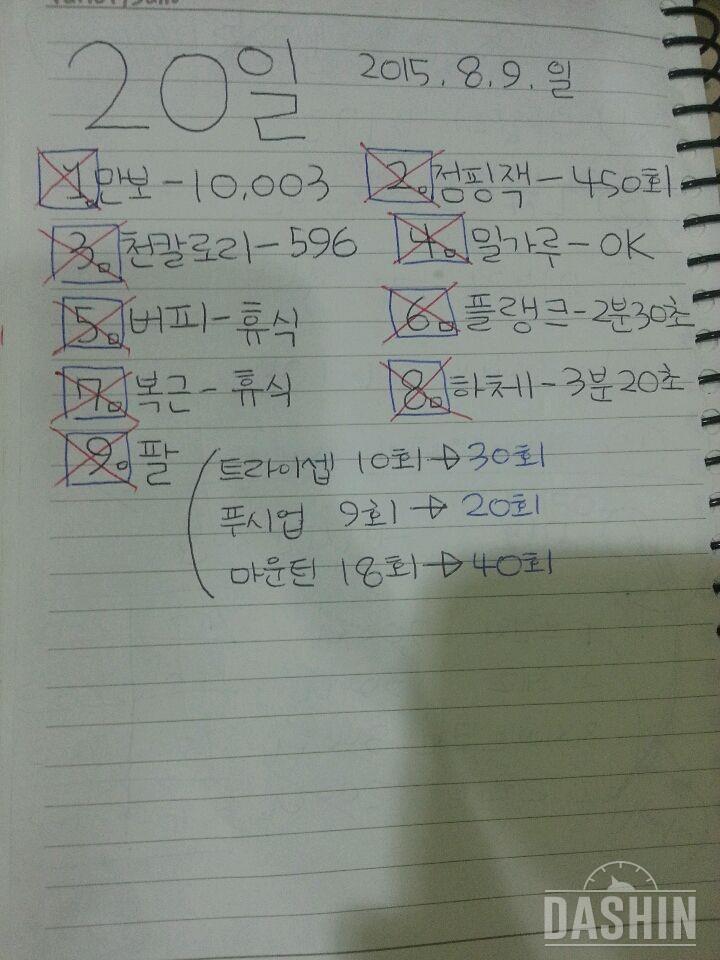 20일 2015.8.9.일
1. 만보-10,003 2. 점핑잭-450회
3. 천칼로리-596 4. 밀가루-OK
5. 버피-휴식 6. 플랭크-2분30초
7. 복근-휴식 8. 하체-3분20초
9. 팔 트라이셉 10회→30회
푸시업 9회→20회
마운틴 18회→40회
DASHIN